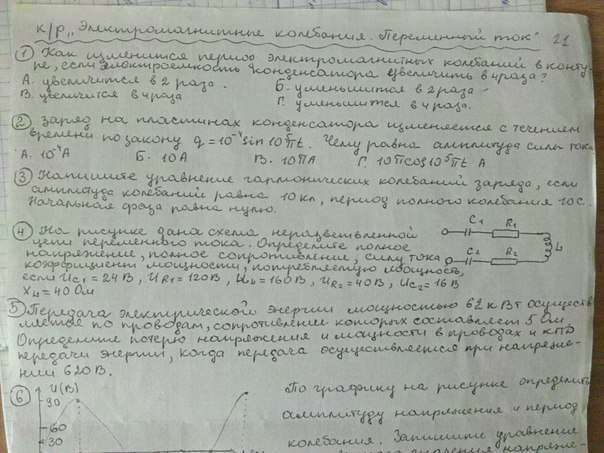 к/р „Электромагнитные колебания. Переменный ток" 21
① Как изменится период электромагнитных колебаний в конту-
ре, если электроёмкость конденсатора увеличить в 4 раза?
А. увеличится в 2 раза. Б. уменьшится в 2 раза
В. увеличится в 4 раза Г. уменьшится в 4 раза.
② Заряд на пластинах конденсатора изменяется с течением
времени по закону q=10⁻⁴sin10⁵πt. Чему равна амплитуда силы тока
А. 10⁻⁴А Б. 10А В. 10πА Г. 10πcos10⁵πt А
③ Напишите уравнение гармонических колебаний заряда, если
амплитуда колебаний равна 10 кл, период полного колебания 10с.
Начальная фаза равна нулю.
④ На рисунке дана схема неразветвленной
цепи переменного тока. Определите полное
напряжение, полное сопротивление, силу тока
коэффициент мощности, потребляемую мощность,
если Uc₁=24В, UR₁=120В, UL₁=160В, UR₂=40В, Uc₂=16В
XL₁=40 Ом
C₁ R₁
L₁
C₂ R₂
⑤ Передача электрической энергии мощностью 62 кВт осущест
вляется по проводам, сопротивление которых составляет 5 Ом
Определите потерю напряжения и мощности в проводах и КПД
передачи энергии, когда передача осуществляется при напряже-
нии 620В.
⑥ U(В)
90
60
30
По графику на рисунке определить
амплитуду напряжения и период
колебания. Запишите уравнение
значения напряже-